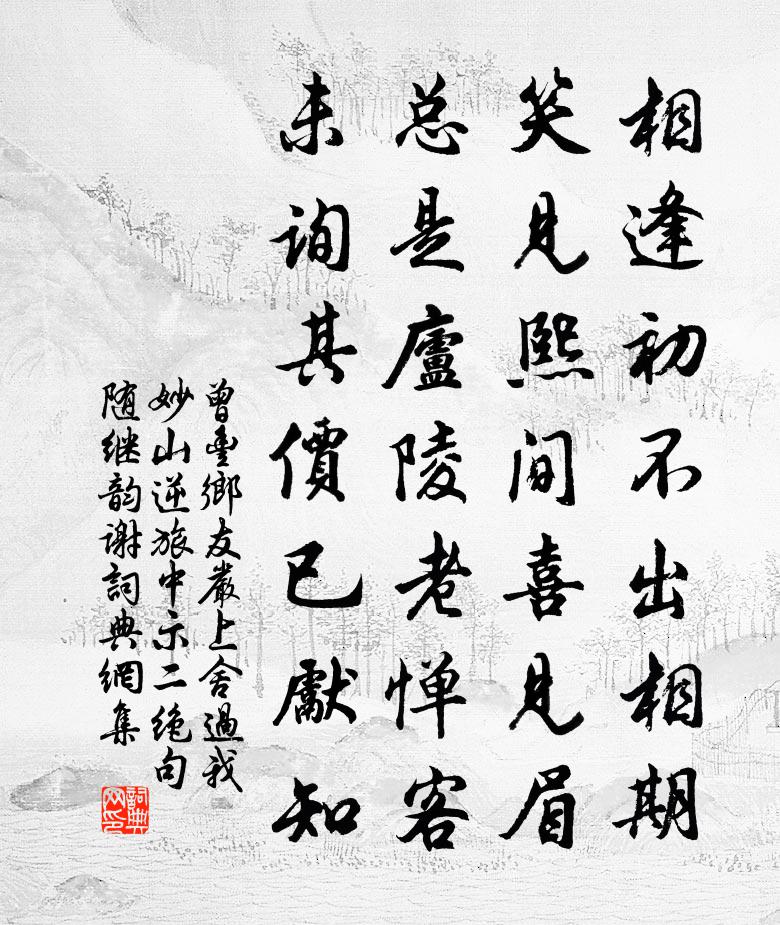 相逢初不出相期
笑見熙间喜見眉
总是廬陵老惮客
未詢其價已獻知
曾豊鄉友嚴上舍過我
妙山逆旅中示二絶句
随继韵谢詞典網集
詞典
网印